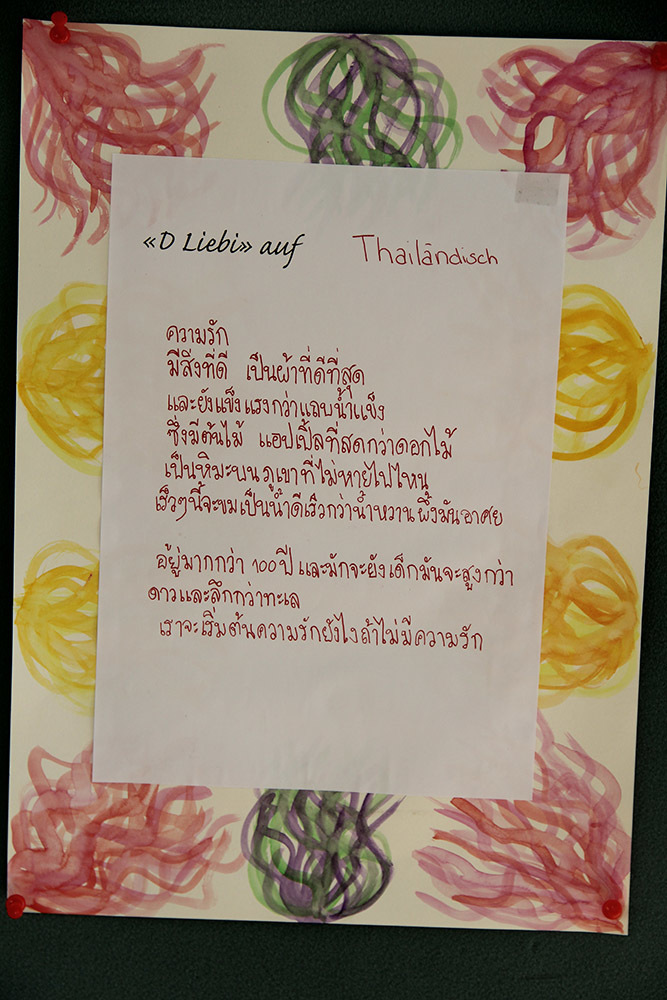 «D Liebi» auf Thailändisch
ความรัก
มีสิ่งที่ดี เป็นผ้าที่ดีที่สุด
และยังแข็งแรงกว่าแถบน้ำแข็ง
ซึ่งมีต้นไม้ แอปเปิ้ลที่สดกว่าดอกไม้
เป็นหิมะบนภูเขาที่ไม่หายไปไหน
เร็วๆนี้จะขมเป็นน้ำดีเร็วกว่าน้ำหวานผึ้งมันอาศย
อยู่มากกว่า 100 ปี และมักจะยังเด็กมันจะสูงกว่า
ดาวและลึกกว่าทะเล
เราจะเริ่มต้นความรักยังไงถ้าไม่มีความรัก